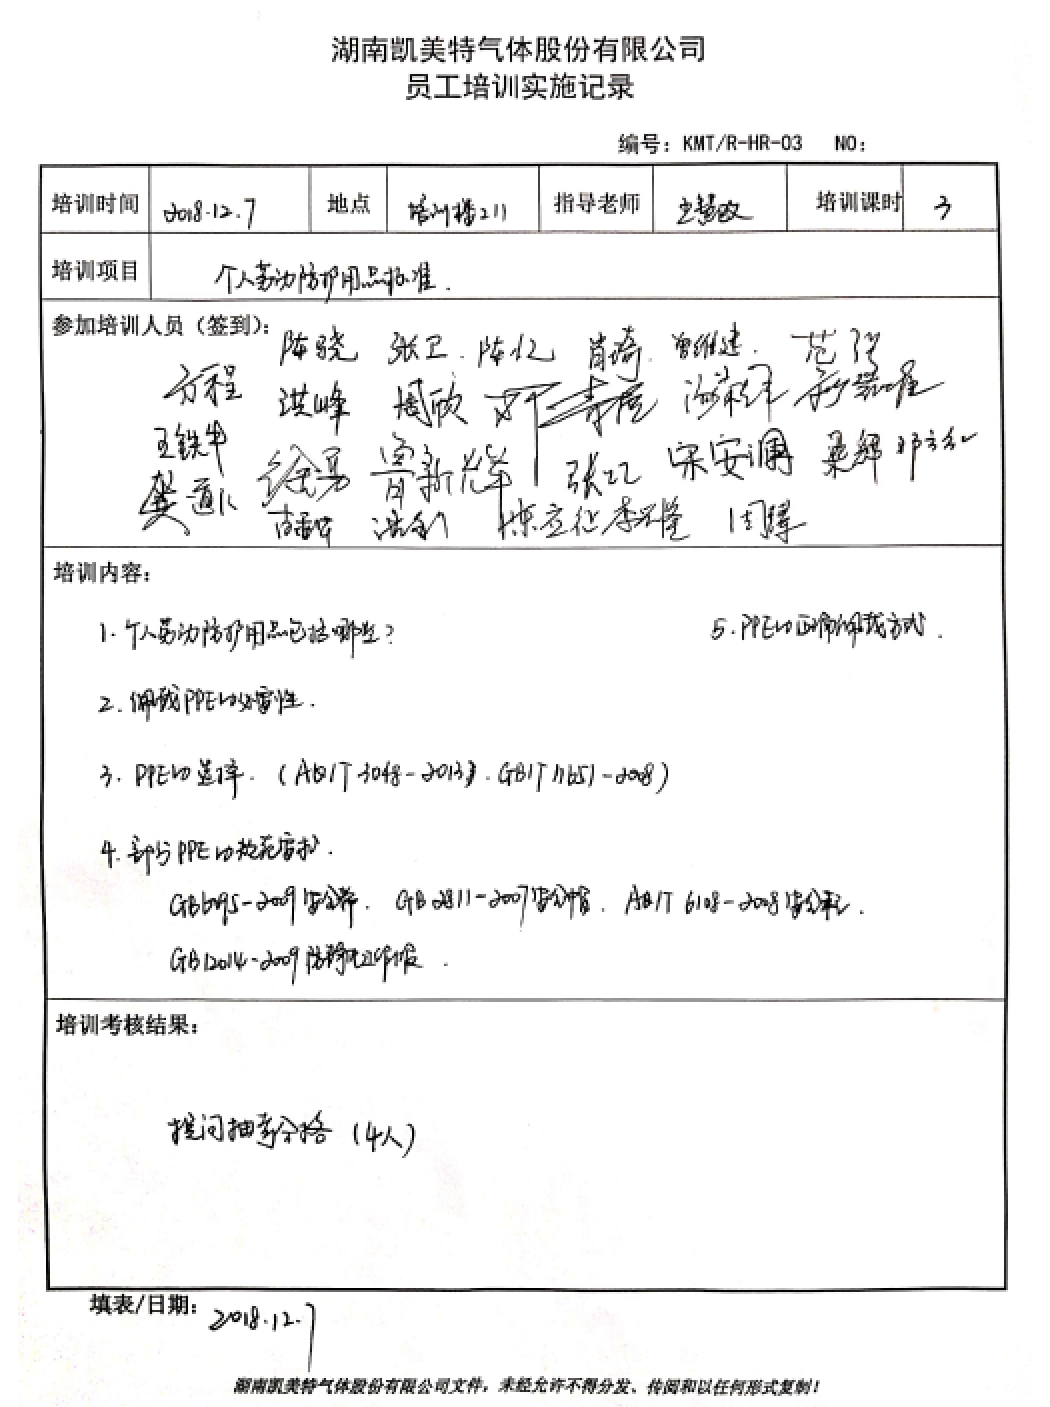 湖南凯美特气体股份有限公司
员工培训实施记录
编号：KMT/R-HR-03 NO：
培训时间 2018.12.7 地点 培训楼211 指导老师 培训课时 3
培训项目 个人劳动防护用品标准.
参加培训人员（签到）：
陈骁 张卫 陈忆 肖琦 曾维建 范
方程 洪峰 周欣
王铁牛 徐勇 曾新辉 张 宋安澜 桑辉
龚道 陈立 周辉
培训内容：
1.个人劳动防护用品包括哪些？ 5.PPE的正确佩戴方式.
2.佩戴PPE的必需性.
3.PPE的选择.（AQ/T 3048-2013）.GB/T 11651-2008）
4.部分PPE的规范需求.
GB6095-2009安全带. GB 2811-2007安全帽. AQ/T 6108-2008安全鞋.
GB12014-2009防静电工作服.
培训考核结果：
提问抽考合格（4人）
填表/日期：2018.12.7
湖南凯美特气体股份有限公司文件，未经允许不得分发、传阅和以任何形式复制！